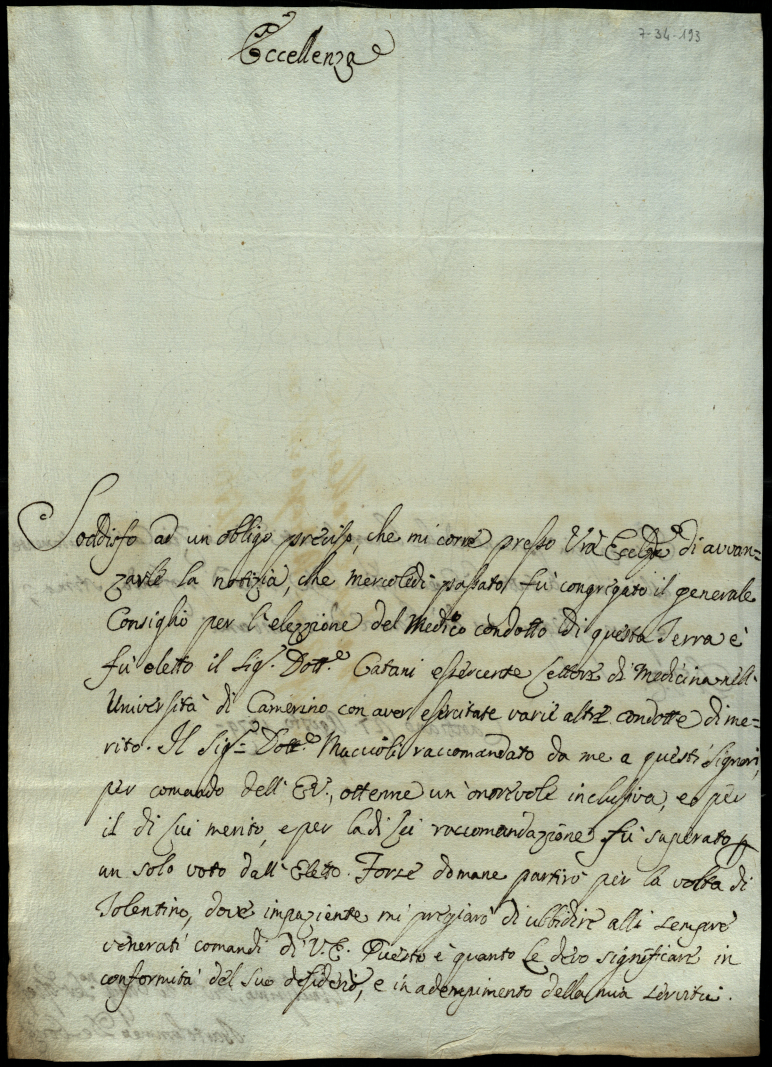 7-34-193
Eccellenza
Soddisfo ad un obligo preciso, che mi corre presso Vrā Eccelza di avvan=
zarle la notizia, che mercoledì passato fù congregato il generale
Consiglio per l'elezzione del Medico condotto di questa Terra è
fù eletto il Sig.r Dott.e Catani esercente Lettore di Medicina nell'
Università di Camerino con aver esercitate varie altre condotte di me=
rito. Il Sig.r Dott.e Muccioli raccomandato da me a questi Signori,
per comando dell' E.V., ottenne un' onorevole inclusiva, e per
il di lui merito, e per la di Lei raccomandazione fù superato p
un solo voto dall' Eletto. Forse domane partirò per la volta di
Tolentino, dove impaziente mi pregiarò di ubbidire alli sempre
venerati comandi di V.E. Questo è quanto le devo significare in
conformità del Suo desiderio, e in adempimento della mia servitù.